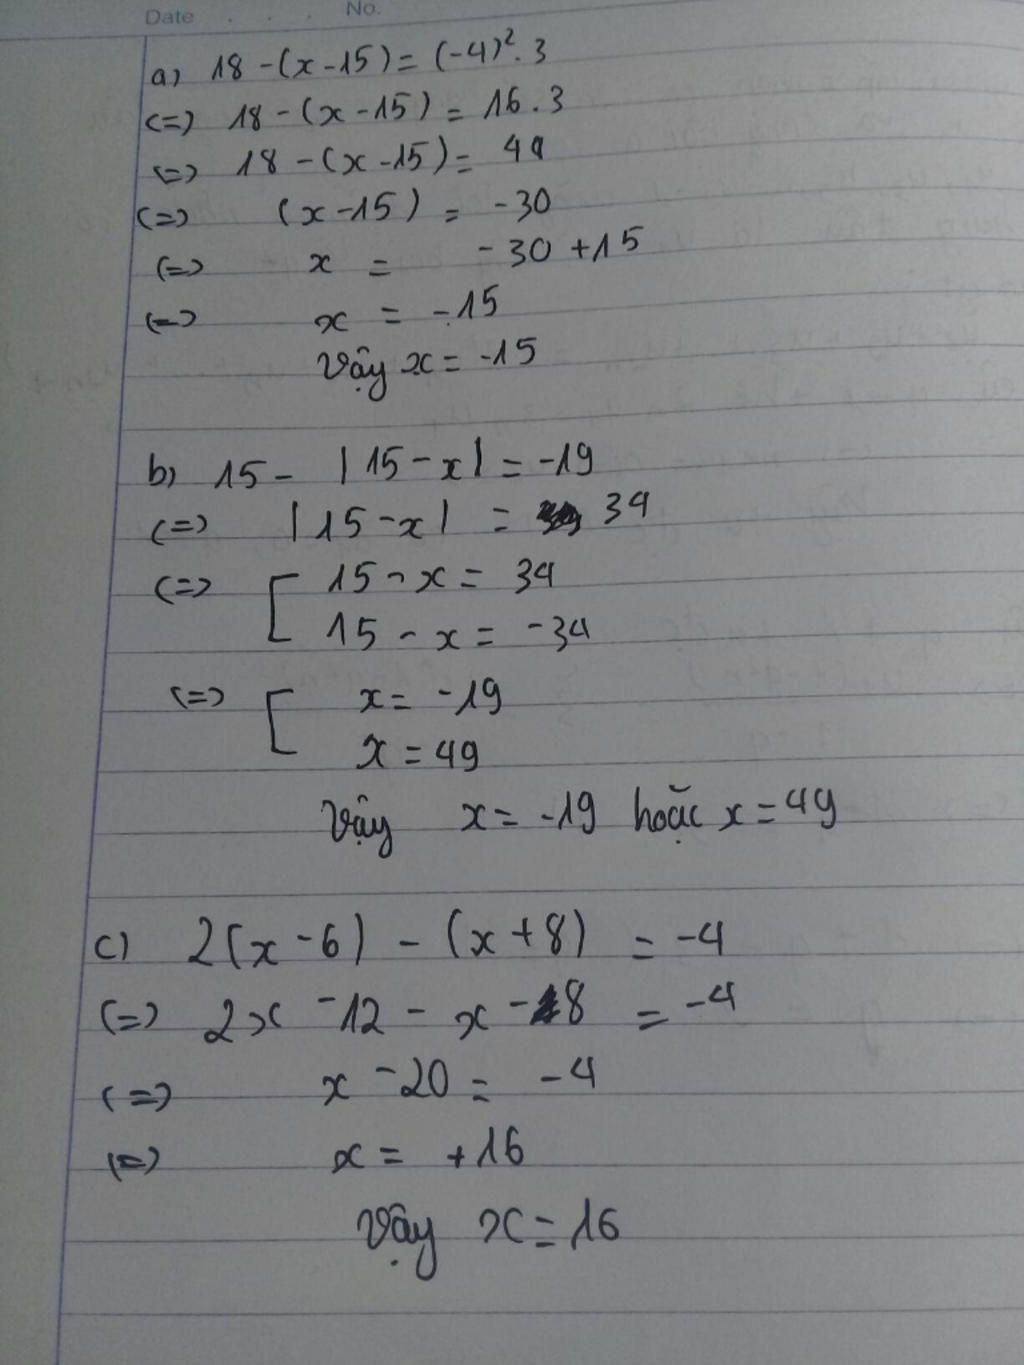 Date . . . No.
a) 18 - (x - 15) = (-4)². 3
<=> 18 - (x - 15) = 16 . 3
<=> 18 - (x - 15) = 48
<=> (x - 15) = -30
<=> x = -30 + 15
<=> x = -15
Vậy x = -15
b) 15 - |15 - x| = -19
<=> |15 - x| = 34
<=> [ 15 - x = 34
15 - x = -34
<=> [ x = -19
x = 49
Vậy x = -19 hoặc x = 49
c) 2(x - 6) - (x + 8) = -4
<=> 2x - 12 - x - 8 = -4
<=> x - 20 = -4
<=> x = +16
Vậy x = 16